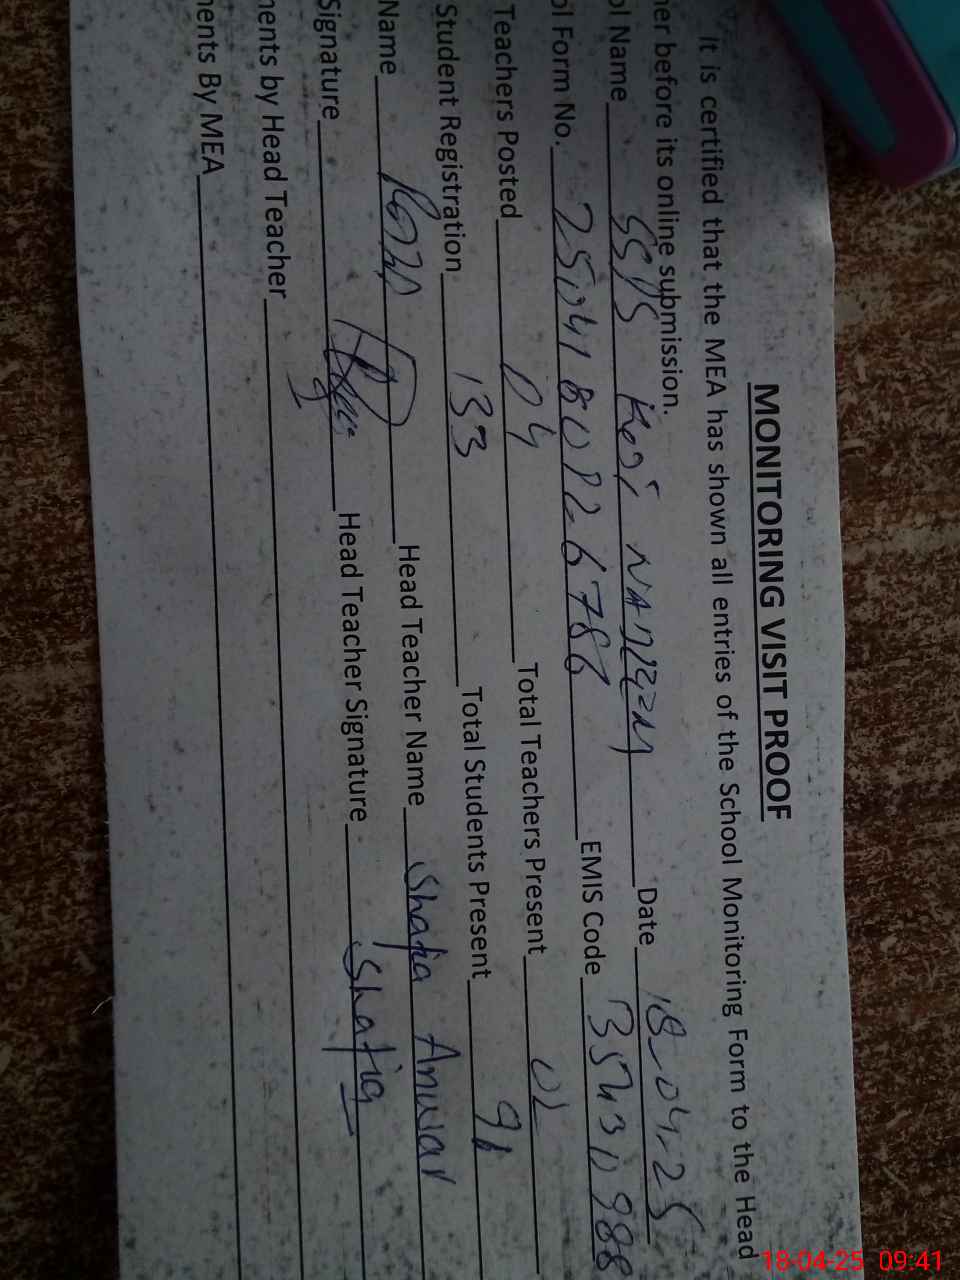 MONITORING VISIT PROOF
It is certified that the MEA has shown all entries of the School Monitoring Form to the Head
her before its online submission.
ol Name Date 18-04-25
ol Form No. EMIS Code 35430988
Teachers Posted 04 Total Teachers Present
Student Registration 133 Total Students Present 91
Name Head Teacher Name Shafia Anwar
Signature Head Teacher Signature Shafia
nents by Head Teacher
nents By MEA
18-04-25 09:41